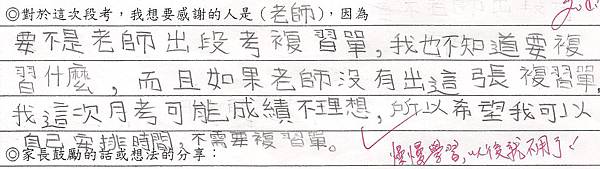 ◎對於這次段考，我想要感謝的人是(老師)，因為
要不是老師出段考複習單，我也不知道要複
習什麼，而且如果老師沒有出這張複習單，
我這次月考可能成績不理想，所以希望我可以
自己安排時間，不需要複習單。
◎家長鼓勵的話或想法的分享：
慢慢學習，以後就不用了！